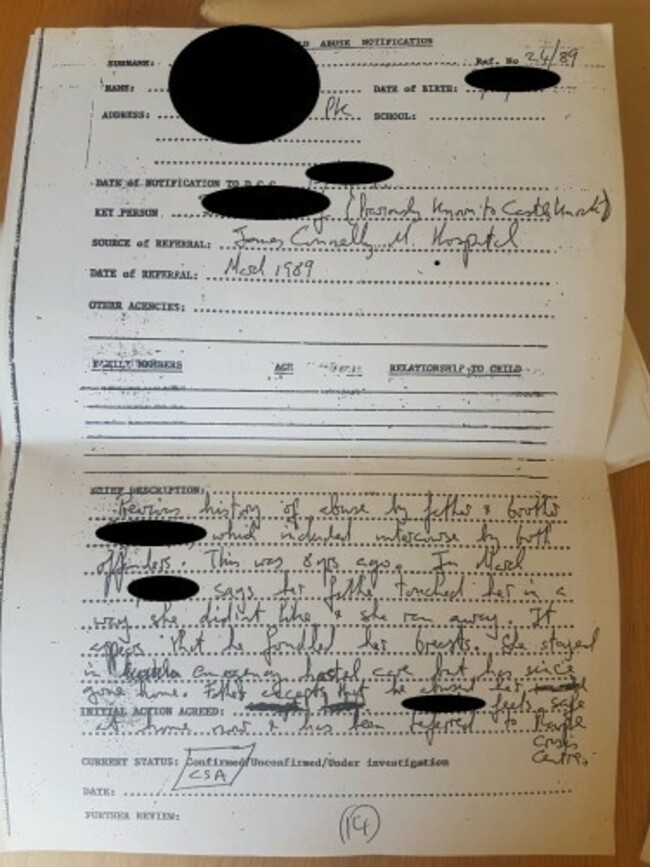 ABUSE NOTIFICATION
SURNAME: Ref. No 24/89
NAME: DATE of BIRTH:
ADDRESS: Pk SCHOOL:
DATE of NOTIFICATION TO D.C.C.
KEY PERSON (Previously known to Castleknock)
SOURCE of REFERRAL: James Connolly M. Hospital
DATE of REFERRAL: March 1989
OTHER AGENCIES:
FAMILY MEMBERS AGE RELATIONSHIP TO CHILD
BRIEF DESCRIPTION:
Previous history of abuse by father & brother
which included intercourse by both
offenders. This was 8 yrs ago. In March
says her father touched her in a
way she didn't like & she ran away. It
appears that he fondled her breasts. She stayed
in emergency hostel care but has since
gone home. Father accepts that he abused her
INITIAL ACTION AGREED: feels safe
at home now & has been referred to Rape
Crisis
Centre.
CURRENT STATUS: Confirmed/Unconfirmed/Under investigation
CSA
DATE:
FURTHER REVIEW: